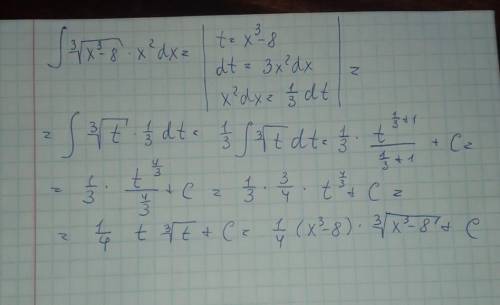 ∫ ∛(x³-8) · x² dx = | t = x³-8
dt = 3x² dx
x² dx = 1/3 dt | =
= ∫ ∛t · 1/3 dt = 1/3 ∫ ∛t dt = 1/3 · t^(1/3+1) / (1/3+1) + C =
= 1/3 · t^(4/3) / (4/3) + C = 1/3 · 3/4 · t^(4/3) + C =
= 1/4 t ∛t + C = 1/4 (x³-8) · ∛(x³-8) + C